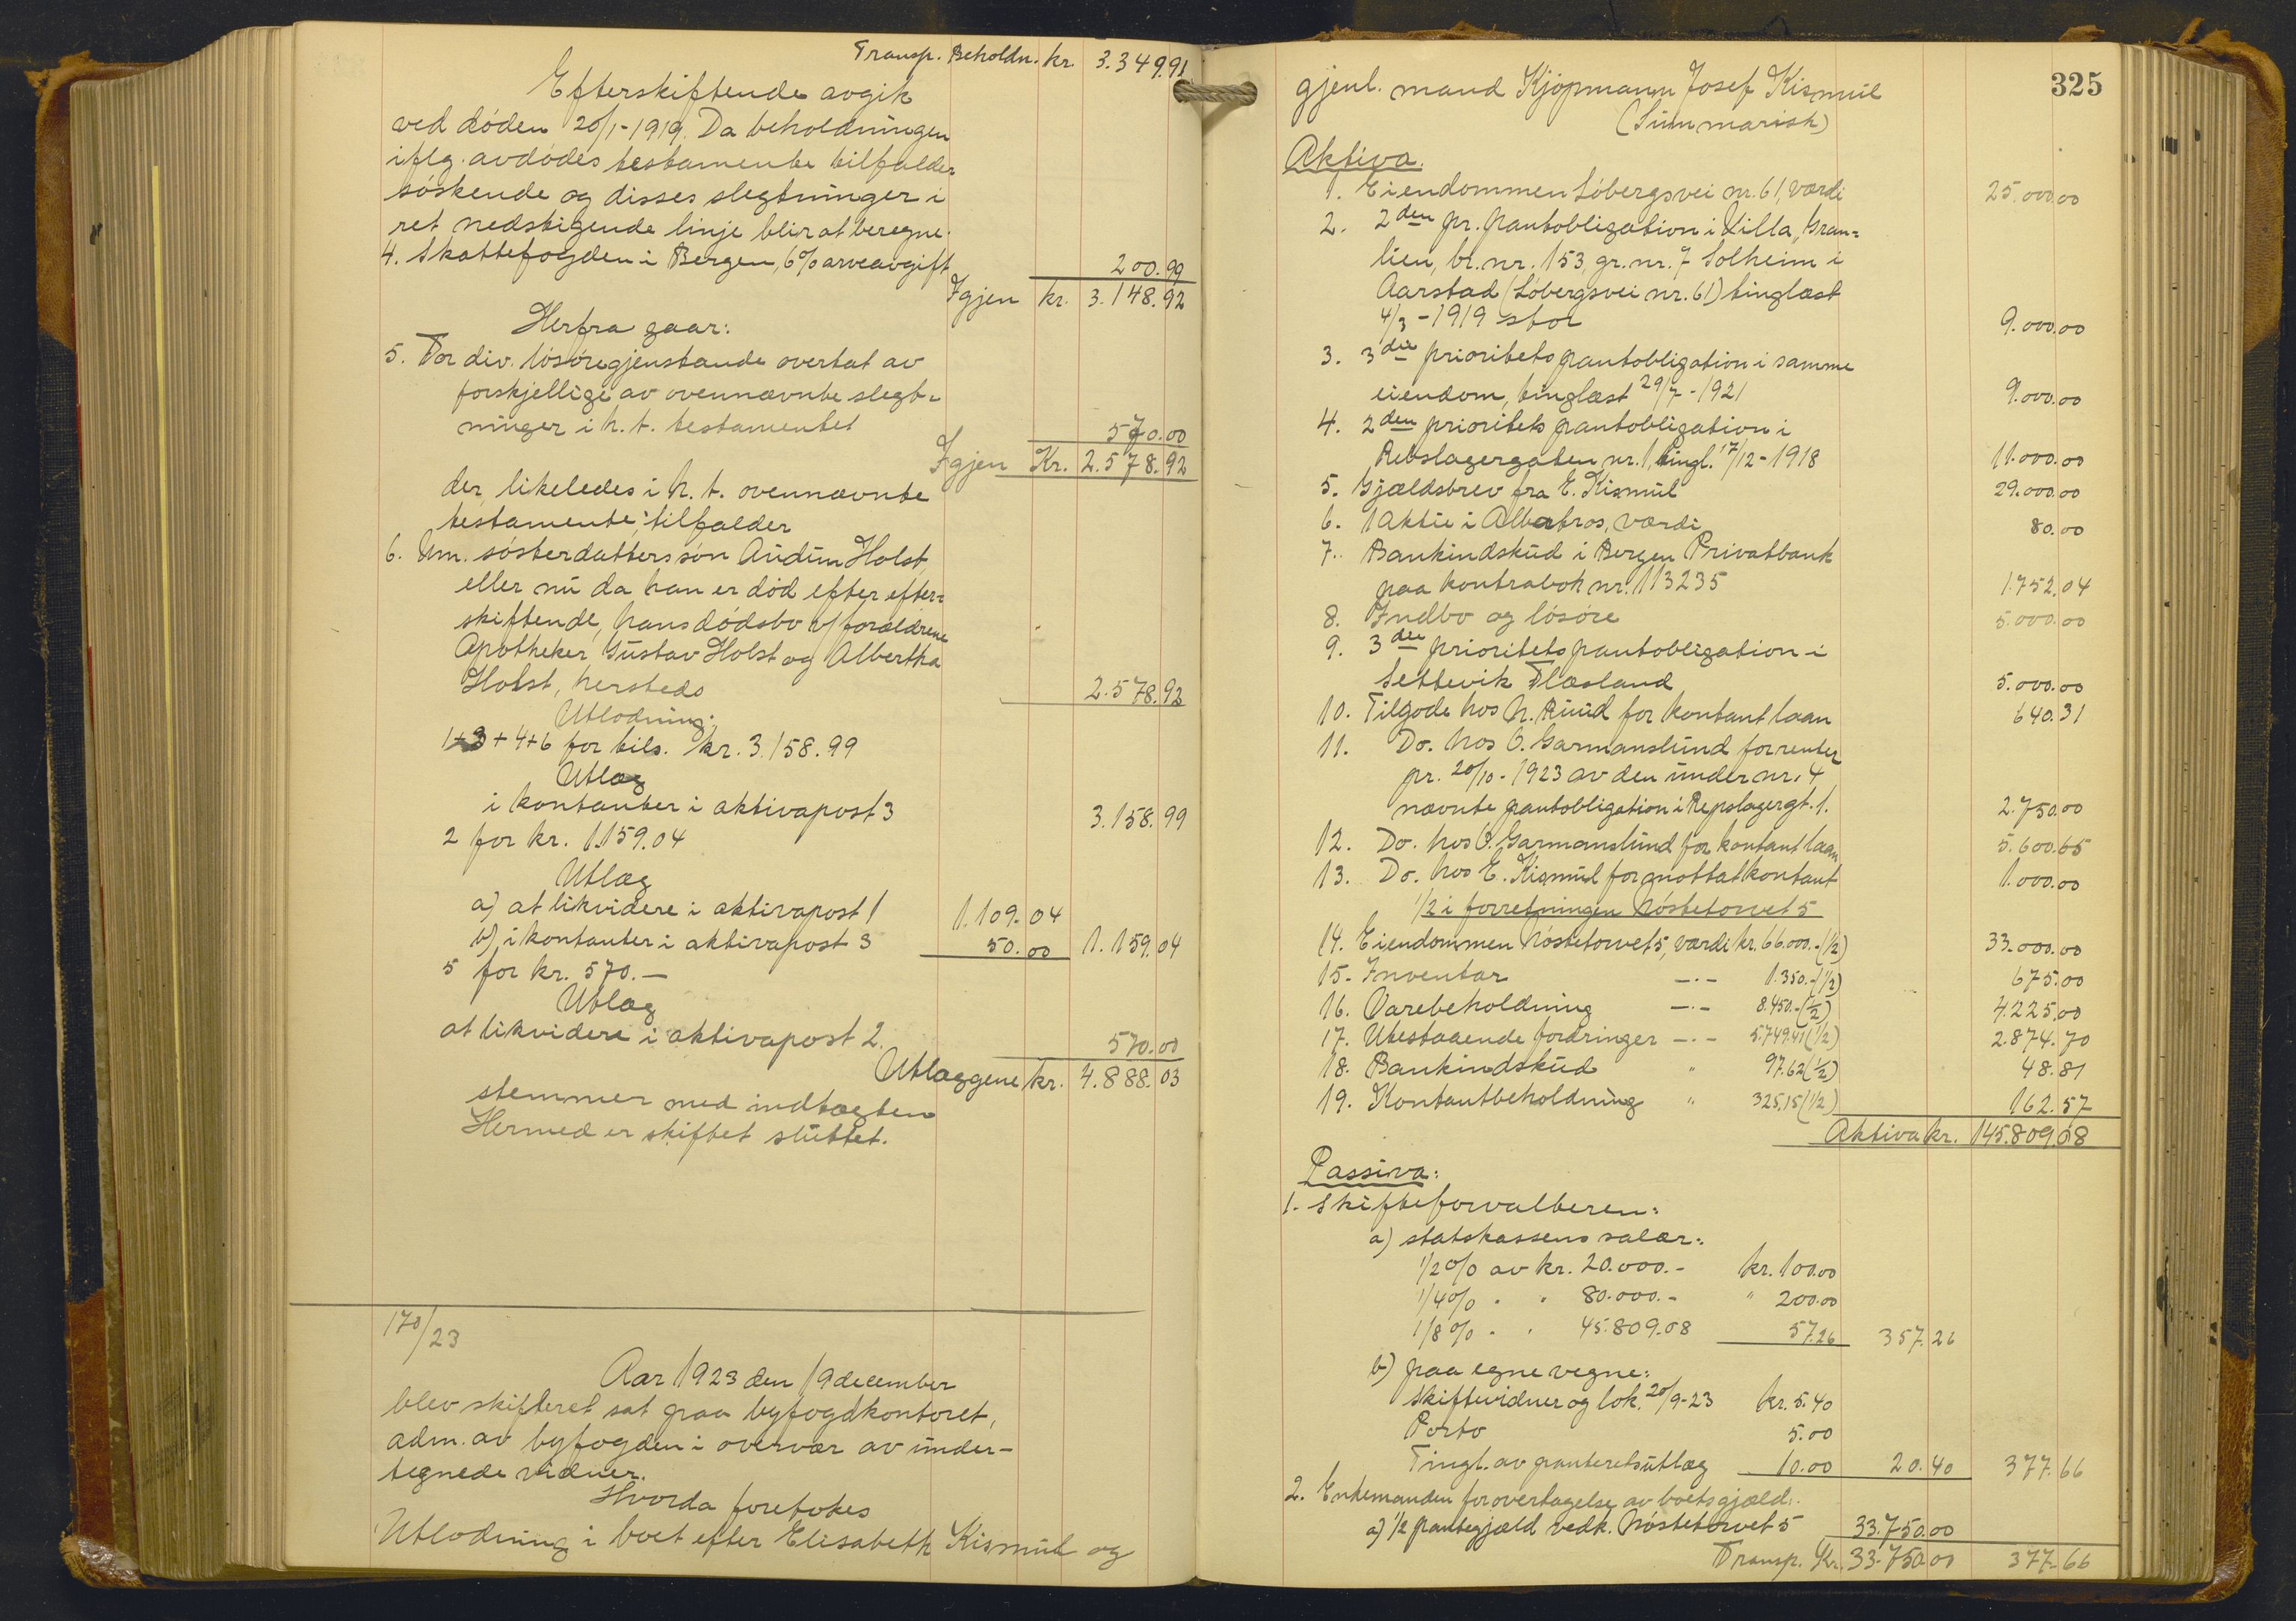 Transp. Beholdn. kr. 3.349.91
Efterskiftende avgik
ved döden 20/1-1919. Da beholdningen
iflg. avdödes testamente tilfalder
söskende og disses slegtninger i
ret nedstigende linje blir at beregne.
4. Skattefogden i Bergen, 6% arveavgift 200.99
Igjen kr. 3.148.92
Herfra gaar:
5. For div. lösöregjenstande overtat av
forskjellige av ovennævnte slegt-
ninger i h.t. testamentet 570.00
Igjen Kr. 2.578.92
der likeledes i h.t. ovennævnte
testamente tilfalder
6. Um. sösterdatters sön Audun Holst,
eller nu da han er död efter efter-
skiftende, hans dödsbo v/ forældrene
Apotheker Gustav Holst og Albertha
Holst, hersteds 2.578.92
Utlodning:
1+3+4+6 for tils. kr. 3.158.99
Utlæg
i kontanter i aktivapost 3 3.158.99
2 for kr. 1.159.04
Utlæg
a) at likvidere i aktivapost 1 1.109.04
b) i kontanter i aktivapost 3 50.00 1.159.04
5 for kr. 570.—
Utlæg
at likvidere i aktivapost 2. 570.00
Utlæggene kr. 4.888.03
stemmer med indtægten
Hermed er skiftet sluttet.
170/23
Aar 1923 den 19 december
blev skifteret sat paa byfogdkontoret,
adm. av byfogden i overvær av under-
tegnede vidner.
Hvorda foretokes
Utlodning i boet efter Elisabeth Kismul og
325
gjenl. mand Kjöpmann Josef Kismul
(Summarisk)
Aktiva.
1. Eiendommen Löbergsvei nr. 61, værdi 25.000.00
2. 2den pr. pantobligation i Villa „Gran-
lien, br. nr. 153, gr. nr. 7 Solheim i
Aarstad (Löbergsvei nr. 61) tinglæst
4/3-1919 stor 9.000.00
3. 3die prioritets pantobligation i samme
eiendom, tinglæst 29/7-1921 9.000.00
4. 2den prioritets pantobligation i
Repslagergaten nr. 1, tingl. 17/12-1918 11.000.00
5. Gjældsbrev fra E. Kismul 29.000.00
6. 1 aktie i Albatros, værdi 80.00
7. Bankindskud i Bergen Privatbank
paa kontrabok nr. 113235 1.752.04
8. Indbo og lösöre 5.000.00
9. 3die prioritets pantobligation i
Settevik Flæsland 5.000.00
10. Tilgode hos N. Ruud for kontant laan 640.31
11. Do. hos O. Garmanslund for renter
pr. 20/10-1923 av den under nr. 4
nævnte pantobligation i Repslagergt. 1. 2.750.00
12. Do. hos O. Garmanslund for kontant laan 5.600.65
13. Do. hos E. Kismul for mottat kontant 1.000.00
1/2 i forretningen Nöstetorvet 5
14. Eiendommen Nöstetorvet 5, værdi kr. 66.000.- (1/2) 33.000.00
15. Inventar —.— 1.350.- (1/2) 675.00
16. Varebeholdning —.— 8.450.- (1/2) 4.225.00
17. Utestaaende fordringer —.— 5.749.41 (1/2) 2.874.70
18. Bankindskud " 97.62 (1/2) 48.81
19. Kontantbeholdning " 325.15 (1/2) 162.57
Aktiva kr. 145.809.08
Passiva:
1. Skifteforvalteren:
a) statskassens salær:
1/2% av kr. 20.000.- kr. 100.00
1/4% " " 80.000.- " 200.00
1/8% " " 45.809.08 57.26 357.26
b) paa egne vegne:
Skiftevidner og lok. 20/9-23 kr. 5.40
Porto 5.00
Tingl. av panteretsutlæg 10.00 20.40 377.66
2. Enkemanden for overtagelse av boets gjæld:
a) 1/2 pantegjæld vedk. Nöstetorvet 5 33.750.00
Transp. Kr. 33.750.00 377.66